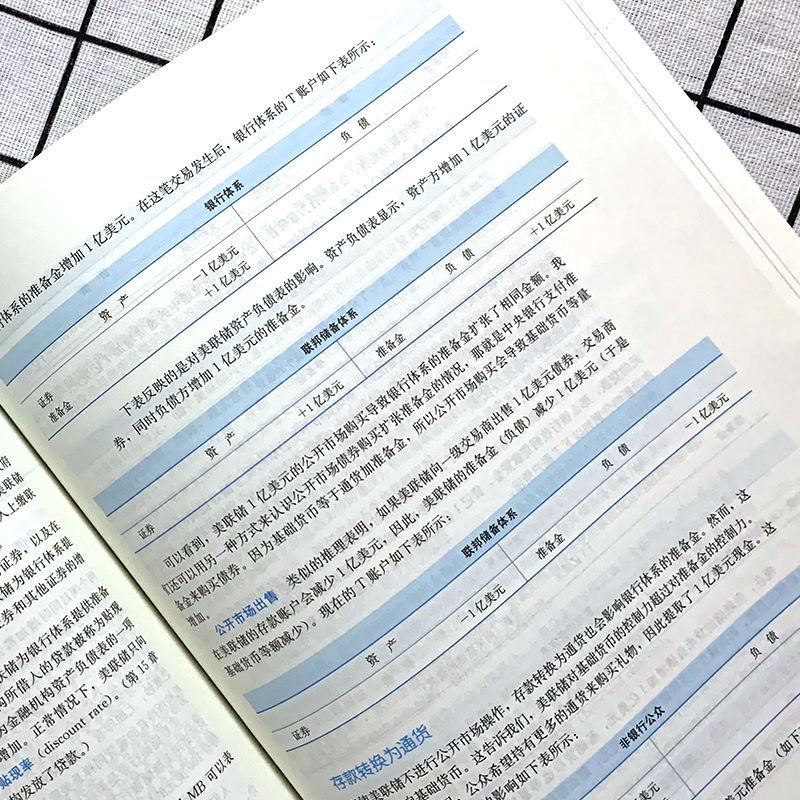 府
美联储
人上缴联
证券，以及在
储为银行体系提
券和其他证券的增
联储为银行体系提供准备
构所借入的贷款被称为贴现
为金融机构资产负债表的一项
增加。正常情况下，美联储只向
贴现率（discount rate）。（第15章
构发放了贷款。）
MB 可以表
行体系的准备金增加1亿美元。在这笔交易发生后，银行体系的T账户如下表所示：
银行体系
资 产 负 债
证券 −1亿美元
准备金 +1亿美元
下表反映的是对美联储资产负债表的影响。资产负债表显示，资产方增加1亿美元的证
券，同时负债方增加1亿美元的准备金。
联邦储备体系
资 产 负 债
证券 +1亿美元 准备金 +1亿美元
可以看到，美联储1亿美元的公开市场购买导致银行体系的准备金扩张了相同金额。我
们还可以用另一种方式来认识公开市场债券购买扩张准备金的情况，那就是中央银行支付准
备金来购买债券。因为基础货币等于通货加准备金，所以公开市场购买会导致基础货币等量
增加。
公开市场出售 类似的推理表明，如果美联储向一级交易商出售1亿美元债券，交易商
在美联储的存款账户会减少1亿美元，因此，美联储的准备金（负债）减少1亿美元（于是
基础货币等额减少）。现在的T账户如下表所示：
联邦储备体系
资 产 负 债
证券 −1亿美元 准备金 −1亿美元
存款转换为通货
使美联储不进行公开市场操作，存款转换为通货也会影响银行体系的准备金。然而，这
基础货币。这告诉我们，美联储对基础货币的控制力超过对准备金的控制力。
公众希望持有更多的通货来购买礼物，因此提取了1亿美元现金。这
影响如下表所示：
非银行公众
负 债
亿美元
美元准备金（如下